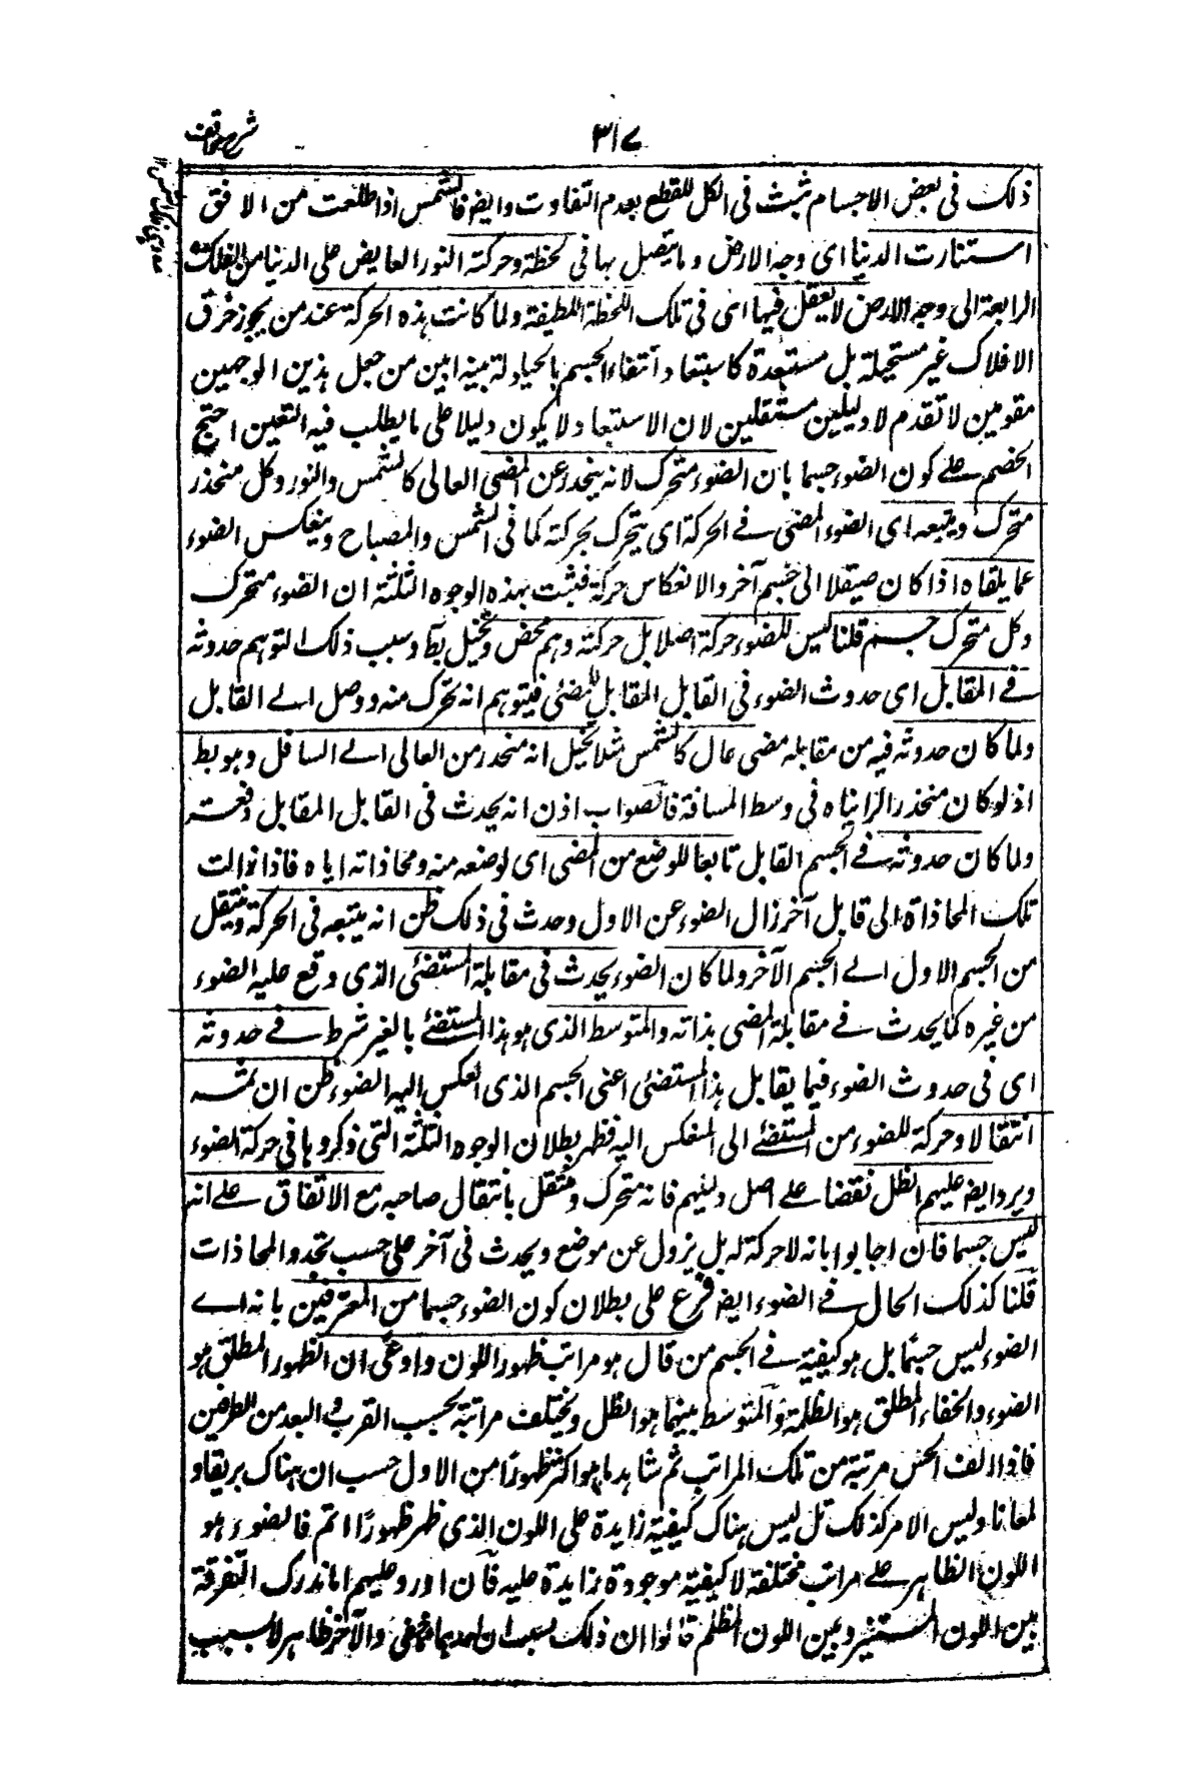 شرح مواقف
٣١٧
ذلك فى بعض الاجسام ثبت فى الكل للقطع بعدم التفاوت وايض فالشمس اذا طلعت من الافق
استنارت الدنيا اى وجه الارض وما يتصل بها فى لحظة وحركة النور الفايض على الدنيا من الفلك
الرابعة الى وجه الارض لا يعقل فيها اى فى تلك اللحظة اللطيفة ولما كانت هذه الحركة عند من يجوز خرق
الافلاك غير مستحيلة بل مستبعدة كاستبعاد انتفاء الجسم بالحيلولة بينهما بين من جعل هذين الوجهين
مقومين لا تقدم لا دليلين مستقلين لان الاستبعاد لا يكون دليلا على ما يطلب فيه اليقين احتج
الخصم على كون الضوء جسما بان الضوء متحرك لانه ينحدر عن المضئ العالى كالشمس والنور وكل منحدر
متحرك ويتبعه اى الضوء المضئ فى الحركة اى يتحرك بحركته كما فى الشمس والمصباح وينعكس الضوء
عما يلقاه اذا كان صيقلا الى جسم آخر والانعكاس حركة فثبت بهذه الوجوه الثلثة ان الضوء متحرك
وكل متحرك جسم قلنا ليس للضوء حركة اصلا بل حركته وهم محض وتخيل بط وسبب ذلك التوهم حدوثه
فى المقابل اى حدوث الضوء فى القابل المقابل للمضئ فيتوهم انه تحرك منه ووصل الى القابل
ولما كان حدوثه فيه من مقابلة مضئ عال كالشمس مثلا تخيل انه منحدر من العالى الى السافل وهو بط
اذ لو كان منحدرا لرايناه فى وسط المسافة فالصواب اذن انه يحدث فى القابل المقابل دفعة
ولما كان حدوثه فى الجسم القابل تابعا للوضع من المضئ اى لوضعه منه ومحاذاته اياه فاذا زالت
تلك المحاذاة الى قابل آخر زال الضوء عن الاول وحدث فى ذلك ظن انه يتبعه فى الحركة وينتقل
من الجسم الاول الى الجسم الآخر ولما كان الضوء يحدث فى مقابلة المستضئ الذى وقع عليه الضوء
من غيره كما يحدث فى مقابلة المضئ بذاته والمتوسط الذى هو هذا المستضئ بالغير شرط فى حدوثه
اى فى حدوث الضوء فيما يقابل هذا المستضئ اعنى الجسم الذى انعكس اليه الضوء ظن ان ثمه
انتقالا وحركة للضوء من المستضئ الى المنعكس اليه فظهر بطلان الوجوه الثلثة التى ذكروها فى حركة الضوء
ويرد ايض عليهم الظل نقضا على اصل دليلهم فانه متحرك ومنتقل بانتقال صاحبه مع الاتفاق على انه
ليس جسما فان اجابوا بانه لا حركة له بل يزول عن موضع ويحدث فى آخر على حسب تجدد المحاذات
قلنا كذلك الحال فى الضوء ايض فرع على بطلان كون الضوء جسما من المعترفين بانه اى
الضوء ليس جسما بل هو كيفية فى الجسم من قال هو مراتب ظهور اللون وادعى ان الظهور المطلق هو
الضوء والخفاء المطلق هو الظلمة والمتوسط بينهما هو الظل ويختلف مراتبه بحسب القرب والبعد من الطرفين
فاذا الف الحس مرتبة من تلك المراتب ثم شاهد ما هو اكثر ظهورا من الاول حسب ان هناك بريقا و
لمعانا وليس الامر كذلك بل ليس هناك كيفية زايدة على اللون الذى ظهر ظهورا اتم فالضوء هو
اللون الظاهر على مراتب مختلفة لا كيفية موجودة زايدة عليه فان اورد عليهم انا ندرك التفرقة
بين اللون المستنير وبين اللون المظلم قالوا ان ذلك بسبب ان احدهما خفى والآخر ظاهر لا بسبب